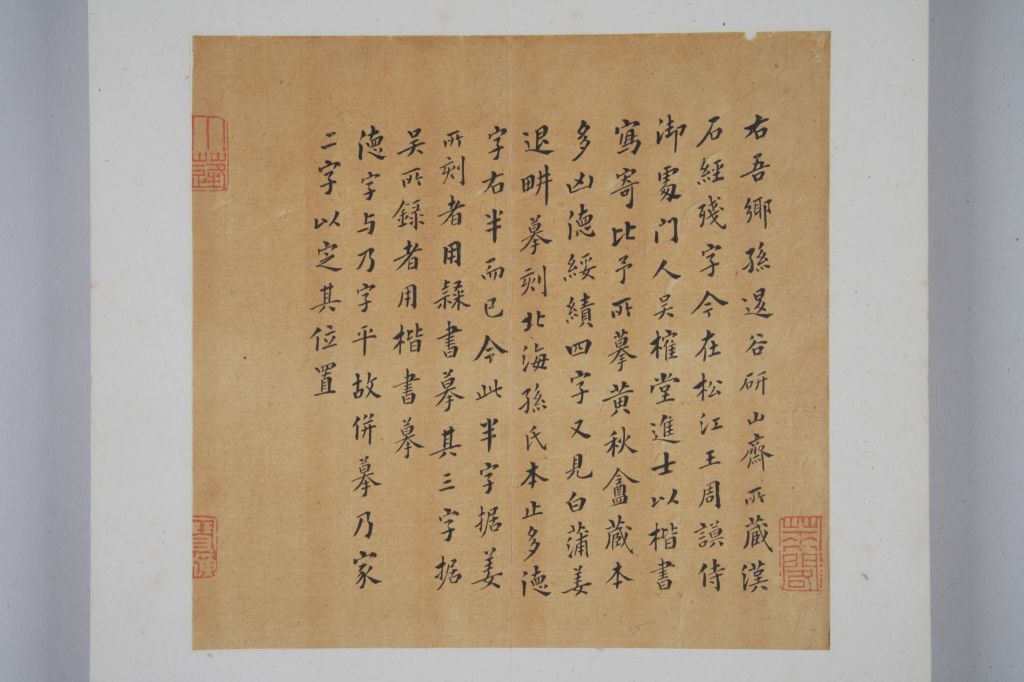 右吾鄉孫退谷研山齋所藏漢
石經殘字今在松江王周謨侍
御處門人吳榷堂進士以楷書
寫寄比予所摹黃秋盦藏本
多凶德綏績四字又見白蒲姜
退畊摹刻北海孫氏本止多德
字右半而已今此半字据姜
所刻者用隸書摹其三字据
吳所錄者用楷書摹
德字与乃字平故併摹乃家
二字以定其位置